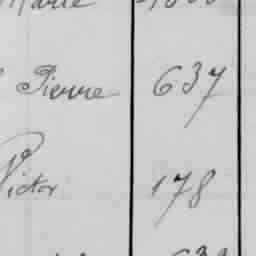 Marie
Pierre 637
Victor 178